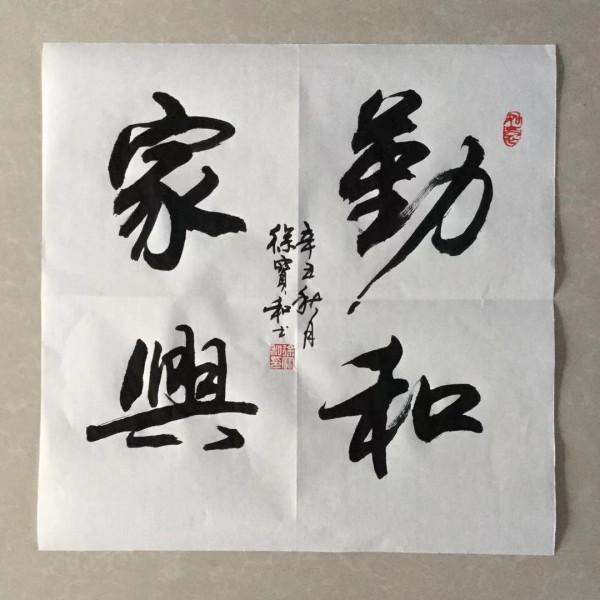 勤和
家興
辛丑秋月
徐寶和书